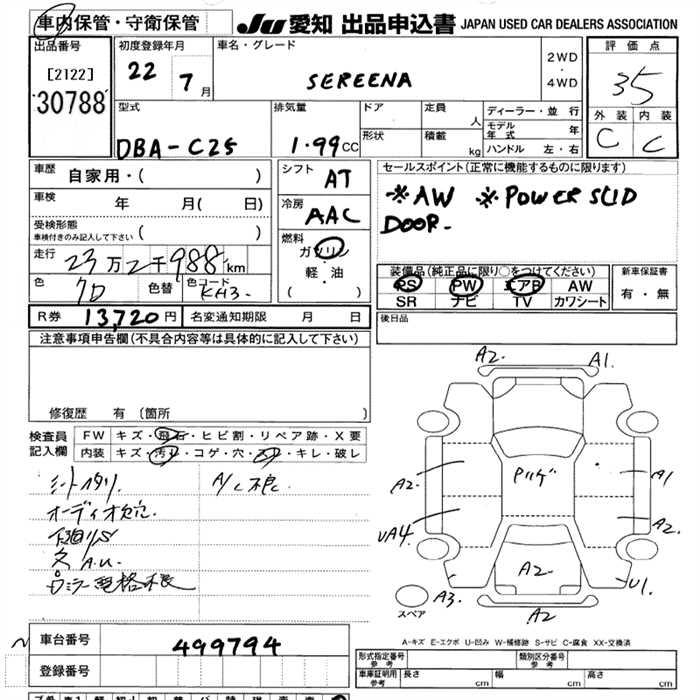 車内保管・守衛保管
JU 愛知 出品申込書 JAPAN USED CAR DEALERS ASSOCIATION
出品番号
[2122]
30788
初度登録年月
22 7月
車名・グレード
SEREENA
2WD
・
4WD
評価点
35
外装 内装
C C
型式
DBA-C25
排気量
1.99CC
ドア
形状
定員 人
積載 kg
ディーラー・並行
モデル年式 年
ハンドル 左・右
車歴 自家用・( )
車検 年 月( 日)
受検形態
車検付きのみ記入して下さい ( )
走行 23万2千988km
色 クロ 色替 色コード KH3.
シフト AT
冷房 AAC
燃料
ガソリン
・
軽・油
( )
セールスポイント(正常に機能するものに限ります)
※AW ※POWER SLID
DOOR-
装備品(純正品に限り○をつけてください)
PS PW エアB AW
SR ナビ TV カワシート
新車保証書
有・無
R券 13,720円 名変通知期限 月 日
後日品
注意事項申告欄(不具合内容等は具体的に記入して下さい)
修復歴 有(箇所 )
検査員
記入欄
FW キズ・飛石・ヒビ割・リペア跡・X要
内装 キズ・汚れ・コゲ・穴・スレ・キレ・破レ
シートヘタリ A/C不良
オーディオ欠品.
下廻りS
ス A.U.
ウミラー電格不良
A2. A1.
A2. Pルーゲ A1
UA4. A2.
A3. A2 U1.
A2
スペア
A-キズ E-エクボ U-凹み W-補修跡 S-サビ C-腐食 XX-交換済
車台番号 499794
登録番号
形式指定番号 参考
類別区分番号 参考
車庫証明用 参考 長さ cm 幅 cm 高さ cm